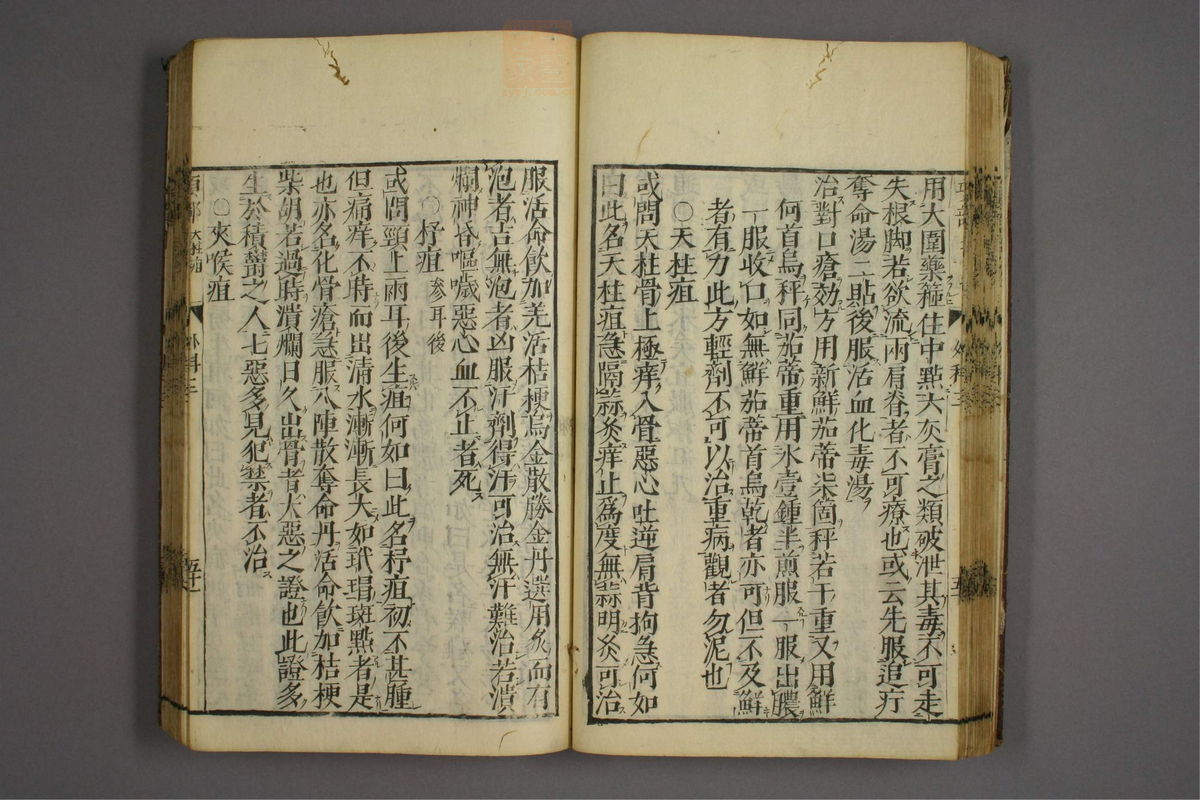 用大圍藥箍住中點大灰膏之類破泄其毒不可走
失根脚若欲流兩肩脊者不可療也或云先服追疔
奪命湯二貼後服活血化毒湯
治對口瘡効方用新鮮茄蒂柒箇秤若干重又用鮮
何首烏秤同茄蒂重用水壹鍾半煎服一服出膿
一服收口如無鮮茄蒂首烏乾者亦可但不及鮮
者有力此方輕劑不可以治重病觀者勿泥也
○天柱疽
或問天柱骨上極痒入骨惡心吐逆肩背拘急何如
曰此名天柱疽急隔蒜灸痒止為度無蒜明灸可治
服活命飲加羌活桔梗烏金散勝金丹選用灸而有
泡者吉無泡者凶服汗劑得汗可治無汗難治若潰
爛神昏嘔噦惡心血不止者死
○杼疽 參耳後
或問頸上兩耳後生疽何如曰此名杼疽初不甚腫
但痛痒不時而出清水漸漸長大如玳瑁斑點者是
也亦名化骨瘡急服八陣散奪命丹活命飲加桔梗
柴胡若過時潰爛日久出骨者大惡之證也此證多
生於積鬱之人七惡多見犯禁者不治
○夾喉疽
外科三